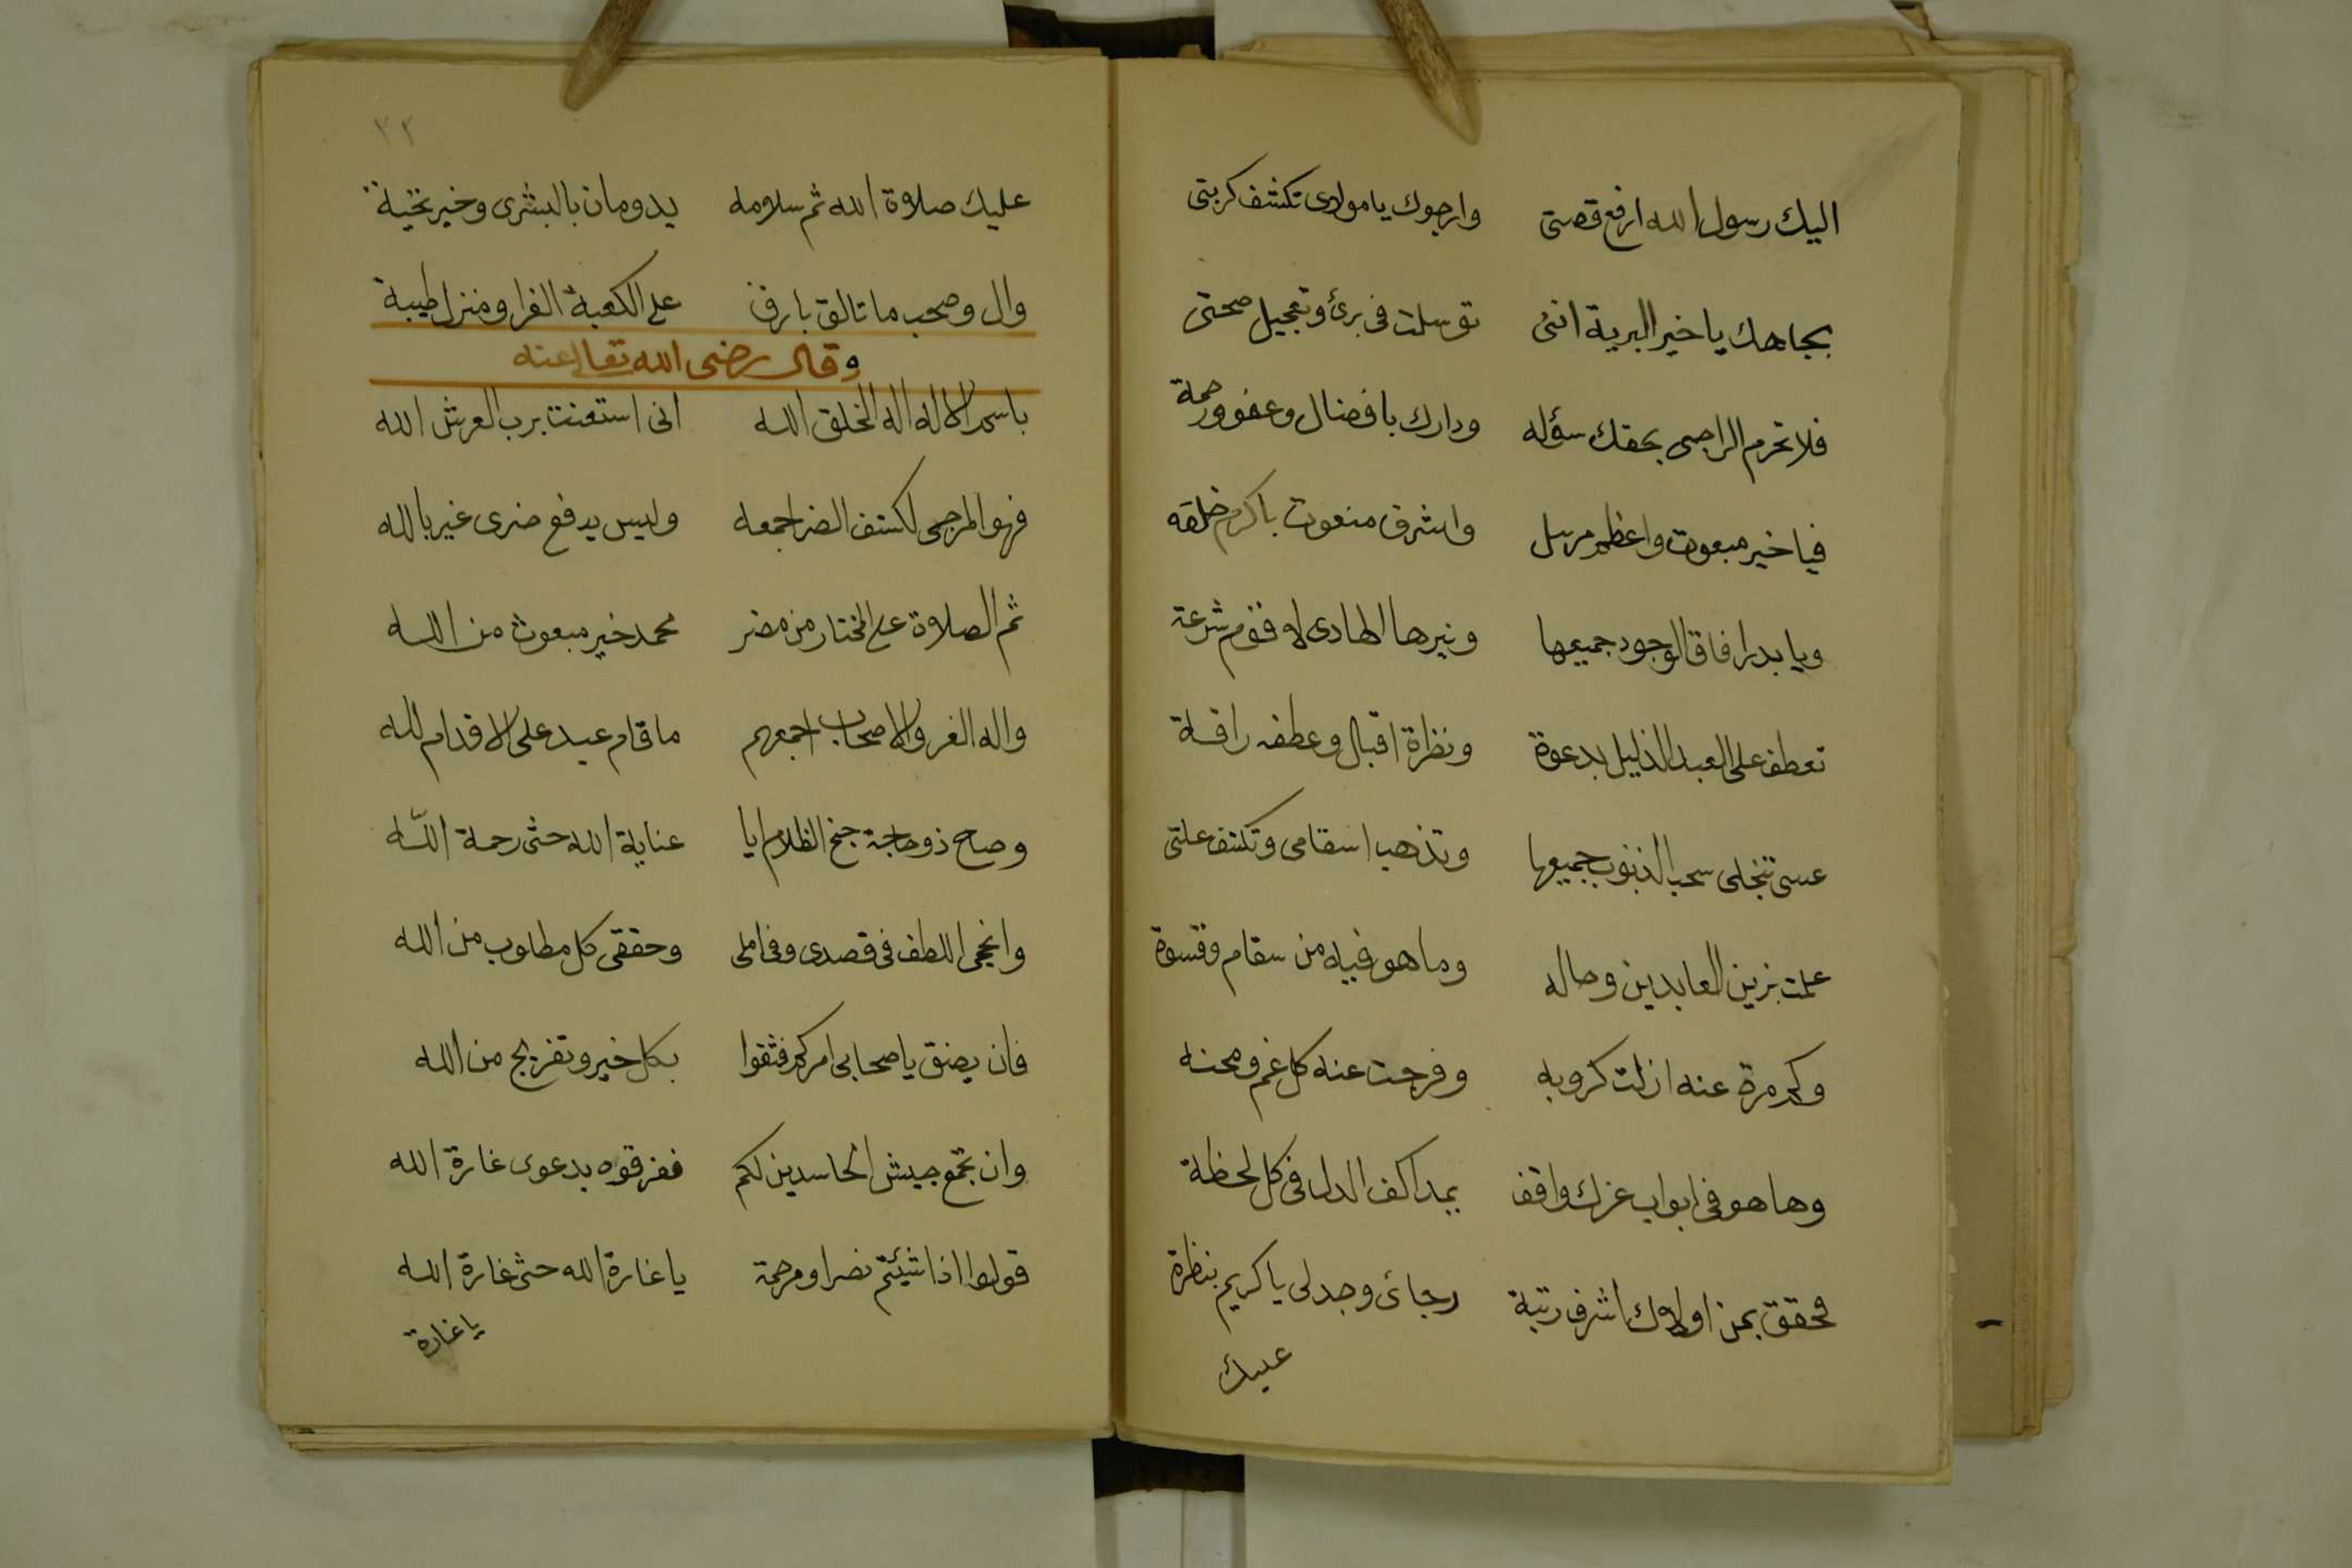 اليك رسول الله ارفع قصتى وارجوك يا مولاى تكشف كربتى
بجاهك يا خير البرية اننى توسلت فى برئ وتعجيل صحتى
فلا تحرم الراجى بحقك سؤله ودارك بافضال وعفو ورحمة
فيا خير مبعوث واعظم مرسل واشرف منعوت باكرم خلقه
ويا بدرا فاق الوجود جميعها ونيرها الهادى لاقوم شرعة
تعطف على العبد الذليل بدعوة ونظرة اقبال وعطفه رافة
عسى تنجلى سحب الذنوب جميعها وتذهب اسقامى وتكشف علتى
علمت بزين العابدين وحاله وما هو فيه من سقام وقسوة
وكم مرة عنه ازلت كروبه وفرجت عنه كل غم ومحنه
وها هو فى ابواب عزك واقف يمد اكف الذل فى كل لحظة
فحقق بمن اولاك اشرف رتبة رجائ وجد لى يا كريم بنظرة
عليك
٣٢
عليك صلاة الله ثم سلامه يدومان بالبشرى وخير تحية
وال وصحب ما تالق بارق على الكعبة الغرا ومنزل طيبة
وقال رضى الله تعالى عنه
باسم الاله اله الخلق الله انى استعنت برب العرش الله
فهو المرجى لكشف الضر اجمعه وليس يدفع ضرى غير بالله
ثم الصلاة على المختار من مضر محمد خير مبعوث من الله
واله الغر والاصحاب اجمعهم ما قام عبد على الاقدام لله
وصاح ذو حاجة جنح الظلام ايا عناية الله حثى رحمة الله
وانجحى اللطف فى قصدى وفى املى وحققى كل مطلوب من الله
فان يضق يا صحابى امركم فثقوا بكل خير وتفريج من الله
وان تجمع جيش الحاسدين لكم ففرقوه بدعوى غارة الله
قولوا اذا شئتم نصرا ومرحمة يا غارة الله حثى غارة الله
يا غارة